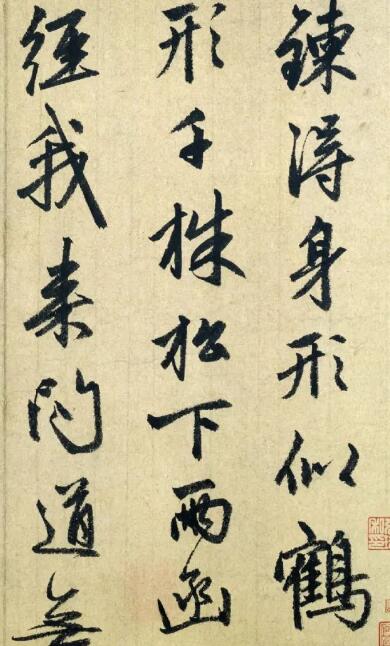 鍊得身形似鶴
形千株松下兩函
經我來問道無